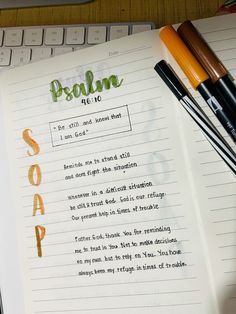 Psalm
46:10
"Be still and know that
I am God"
S
O
A
P
Reminds me to stand still
and dont fight the situation
whenever in a difficult situation
be still & trust God. God is our refuge
Our present help in times of trouble
Father God, thank You for reminding
me to trust in You. Not to make decisions
on my own, but to rely on You. You have
always been my refuge in times of trouble.